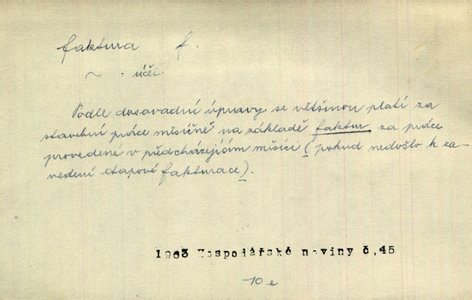 faktura f.
~ . účet
Podle dosavadní úpravy se většinou platí za
stavební práce měsíčně na základě faktur za práce
provedené v předcházejícím měsíci (pokud nedošlo k za-
vedení etapové fakturace).
1963 Hospodářské noviny č.45
10 e